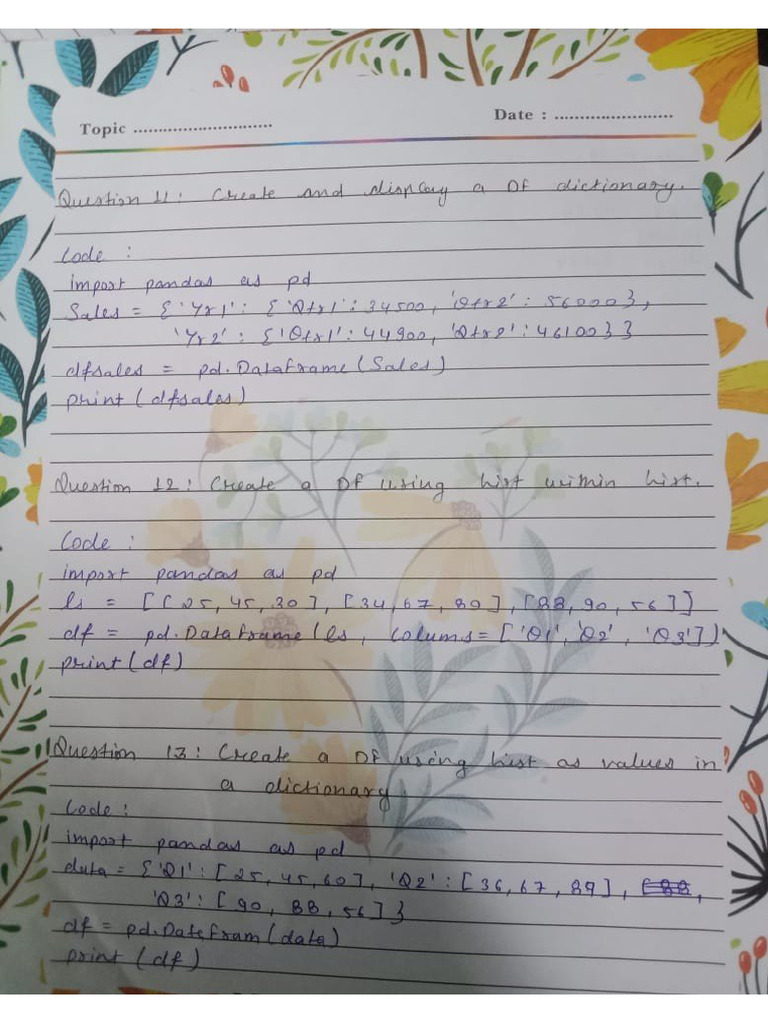 Topic ............................
Date : ........................
Question 11: Create and display a DF dictionary.
Code :
import pandas as pd
Sales = {'Yr1': {'Qtr1': 34500, 'Qtr2': 56000},
'Yr2': {'Qtr1': 44900, 'Qtr2': 46100}}
dfsales = pd.DataFrame(Sales)
print(dfsales)
Question 12: Create a DF using list within list.
Code :
import pandas as pd
ls = [[25, 45, 30], [34, 67, 80], [88, 90, 56]]
df = pd.DataFrame(ls, Colums = ['Q1', 'Q2', 'Q3'])
print(df)
Question 13: Create a DF using list as values in
a dictionary.
Code :
import pandas as pd
data = {'Q1': [25, 45, 60], 'Q2': [36, 67, 89], ,
'Q3': [90, 88, 56]}
df = pd.DateFram(data)
print (df)